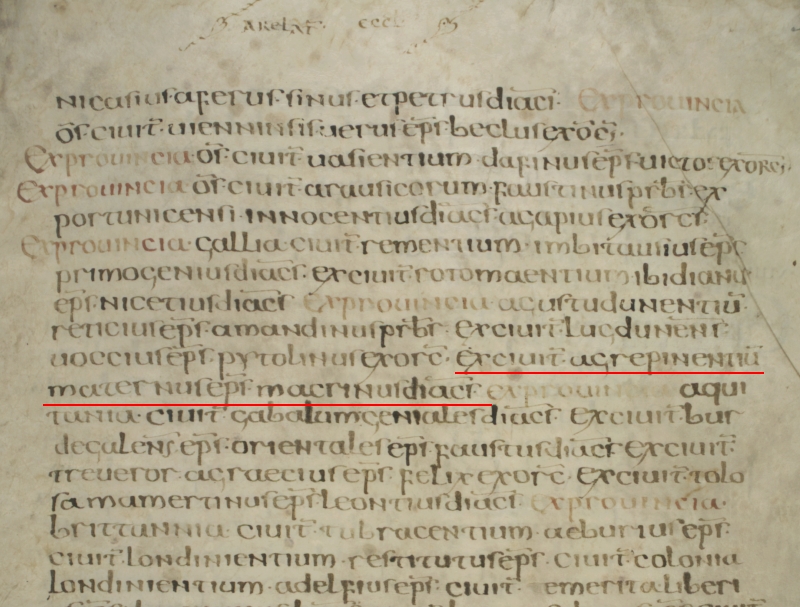 ARELAT eccl
nicasius afer ursinus et petrus diaci Ex prouincia
os ciuit uienninsis uerus eps beclus exorc
Ex prouincia os ciuit uasientium dafinus eps uictor exorc
Ex prouincia os ciuit arausicorum faustinus prbi ex
portu nicensi innocentius diacs agapius exorcs
Ex prouincia gallia ciuit rementium imbitausius eps
primogenius diacs ex ciuit rotomagentium ibidianus
eps nicetius diacs Ex prouincia agustudunentiu
reticius eps amandinus prbr Ex ciuit lugdunent
uoccius eps pytolinus exorc Ex ciuit agrepinentiu
maternus eps macrinus diacs ex prouincia aqui
tania ciuit gabalum genialis diacs Ex ciuit bur
degalens eps orientales eps faustus diacs Ex ciuit
treueror agraecius eps felix exorc Ex ciuit tolo
sa mamertinus eps leontius diacs Ex prouincia
brittannia ciuit tubracentium aeburius eps
ciuit londinientium restitutus eps ciuit colonia
londinientium adelfius eps ciuit emerita liberi